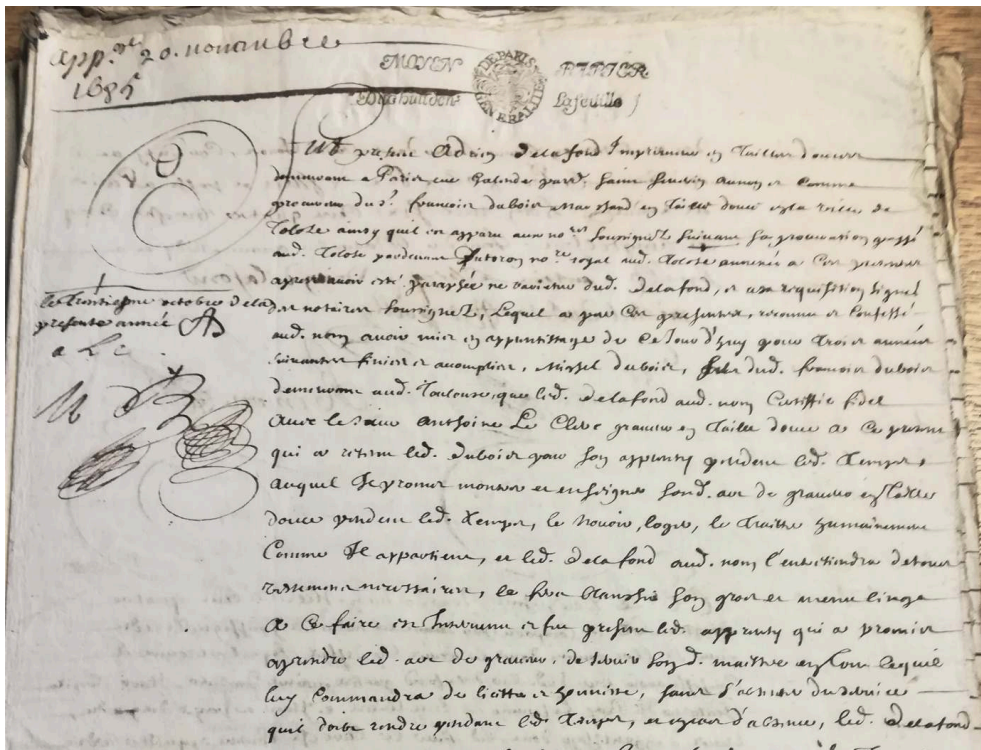 app.^ge 20. novembre
1685
MOYEN PAPIER
GENERALITE DE PARIS
la feuille
Fut present Adrien Delafond Imprimeur en Taille douce
demeurant a Paris rue Galande parr. Saint Severin au nom et comme
procureur du s.^r francois dubois Marchand en Taille douce de
Tolose ainsy quil en apparu aux no.^res soussignez suivant sa procuration passé
aud. Tolose pardevant no.^re royal aud. Tolose annexée a Ces presentes
apres avoir esté paraphée ne varietur dud. Delafond, et a sa requisition signé
le trentiesme octobre de la
presente année
des notaires soussignez, Lequel a par Ces presentes, reconnu et Confessé
aud. nom avoir mis en apprentissage de Ce Jour d'huy pour Trois années
suivantes finies et acomplies, Michel dubois, fils dud. francois dubois
demeurant aud. Toulouse, que led. Delafond aud. nom Certiffie fidel
Avec le sieur Anthoine Le Clerc graveur en Taille douce a Ce present
qui a retenu led. dubois pour son apprenty pendant led. Temps,
auquel Il promet monstrer et enseigner sond. art de graveur en Taille
douce pendant led. Temps, le nourir, loger, le Traitter humainement
Comme Il appartient, et led. Delafond aud. nom l'entretiendra de tous
vestemens necessaires, le fera blanchir son gros et menu linge
A Ce faire est Intervenu et fut present led. apprenty qui a promis
aprendre led. art de graveur, de servir sond. maittre en tout lequil
luy Commandra de licitte et honneste, sans s'absenter du service
quil doibt rendre pendant led. Temps, et en cas d'absence, led. Delafond